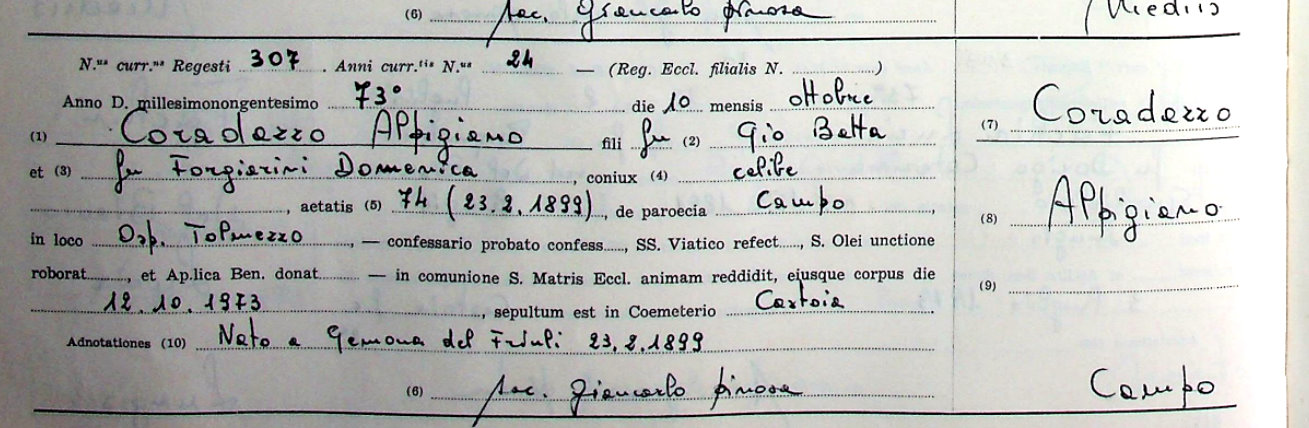 (6) sac. Giancarlo Pinosa
N.us curr.us Regesti 307. Anni curr.tis N.us 24 — (Reg. Eccl. filialis N. ............)
Anno D. millesimonongentesimo 73° die 10 mensis ottobre
(1) Coradazzo Alpigiano fili fu (2) Gio Batta
et (3) fu Forgiarini Domenica, coniux (4) celibe
, aetatis (5) 74 (23.2.1899), de paroecia Campo,
in loco Osp. Tolmezzo, — confessario probato confess....., SS. Viatico refect....., S. Olei unctione
roborat........, et Ap.lica Ben. donat........ — in comunione S. Matris Eccl. animam reddidit, eiusque corpus die
12.10.1973, sepultum est in Coemeterio Cartoia
Adnotationes (10) Nato a Gemona del Friuli 23.2.1899
(6) sac. Giancarlo Pinosa
(7) Coradazzo
(8) Alpigiano
(9)
Campo